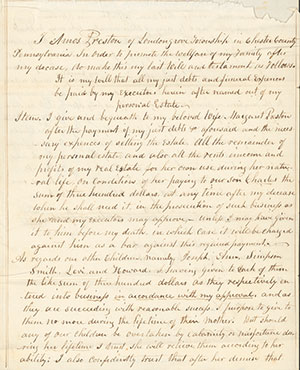 I Amos Preston of Londongrove Township in Chester County
Pennsylvania In order to promote the Welfare of my Family after
my decease, do make this my last Will and Testament as follows
It is my will that all my just debts and funeral expenses
be paid by my Executors herein after named out of my
personal Estate
Item. I give and bequeath to my beloved Wife, Margaret Preston
after the payment of my just debts as aforesaid and the neces
sary expenses of settling the Estate. All the remainder of
my personal estate, and also all the rents income and
profits of my Real Estate for her own use during her natu
ral life. On Conditions of her paying to our Son Charles the
Sum of three hundred dollars at any time after my decease
when he shall need it in the prosecution of such business as
she and my Executors may approve. Unless I may have given
it to him before my death, in which case it will be charged
against him as a bar against this required payment
As regards our other Children, namely, Joseph, Ann, Simpson
Smith, Levi and Howard. I having given to each of them
the like sum of three hundred dollars as they respectively en
tered into business in accordance with my approval and as
they are succeeding with reasonable success. I propose to give to
them no more during the lifetime of their Mother. But should
any of our Children be overtaken by calamity or misfortune du
ring her lifetime I trust she will relieve them according to her
ability: I also confidently trust that after her demise that